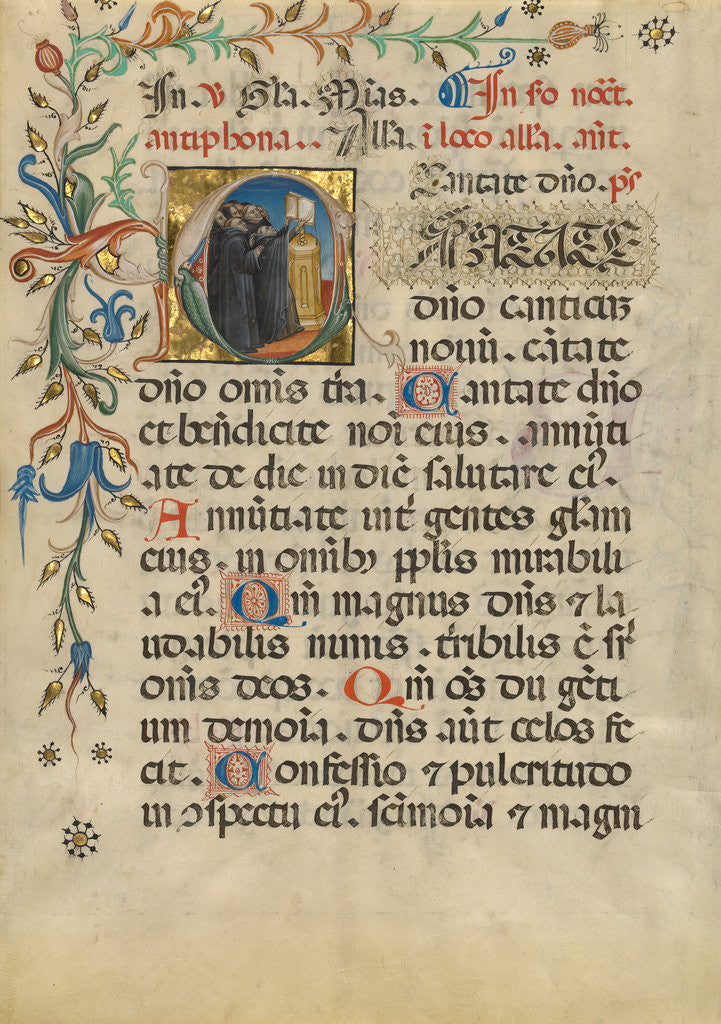 In. v Gla. Mias. In so noct.
antiphona.. Alla. i loco alla. ant.
Cantate dno. ps
CANTATE
dno canticuz
novu. cātate
dno omis tra. Cantate dno
et benedicite noi eius. annūti
ate de die in diē salutare ei'.
Annūtiate int' gentes glam
eius. in omnib; pplis mirabili
a ei'. Qm magnus dns ⁊ la
udabilis nimis. t'ribilis ē sr
omīs deos. Qm oēs dii gēti
um demoīa. dns aūt celos fe
cit. Confessio ⁊ pulcritudo
in ɔspectu ei'. sc̄imoīa ⁊ magni